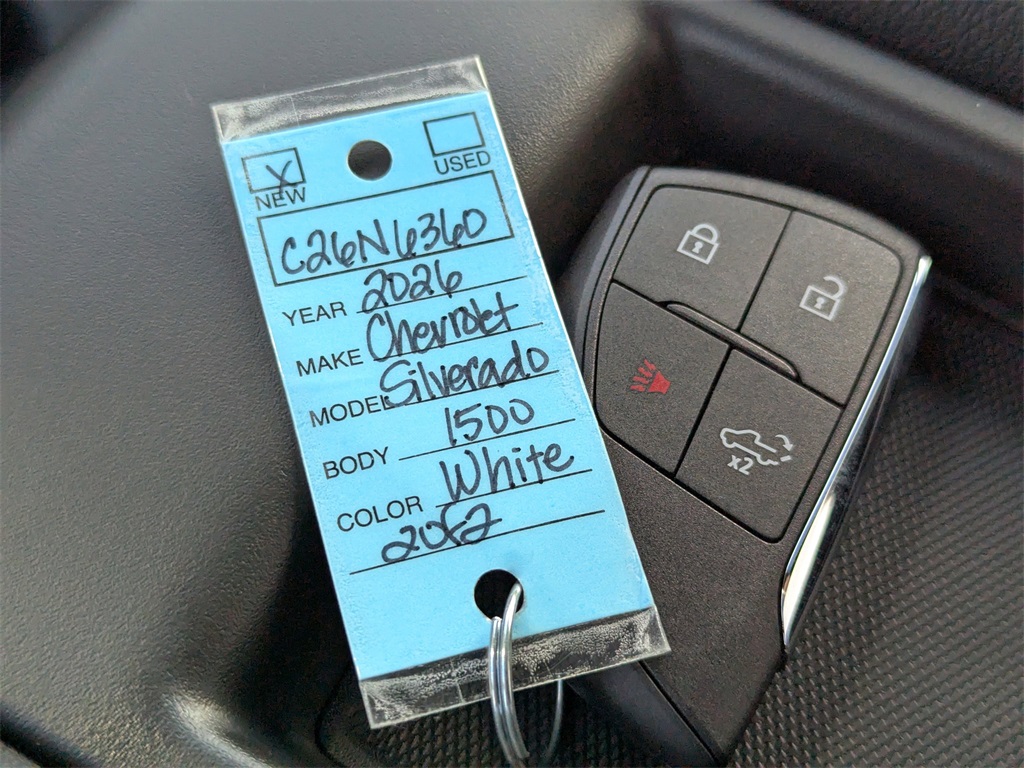 NEW USED
C26N6360
YEAR 2026
MAKE Chevrolet
MODEL Silverado
BODY 1500
COLOR White
20F2
x2